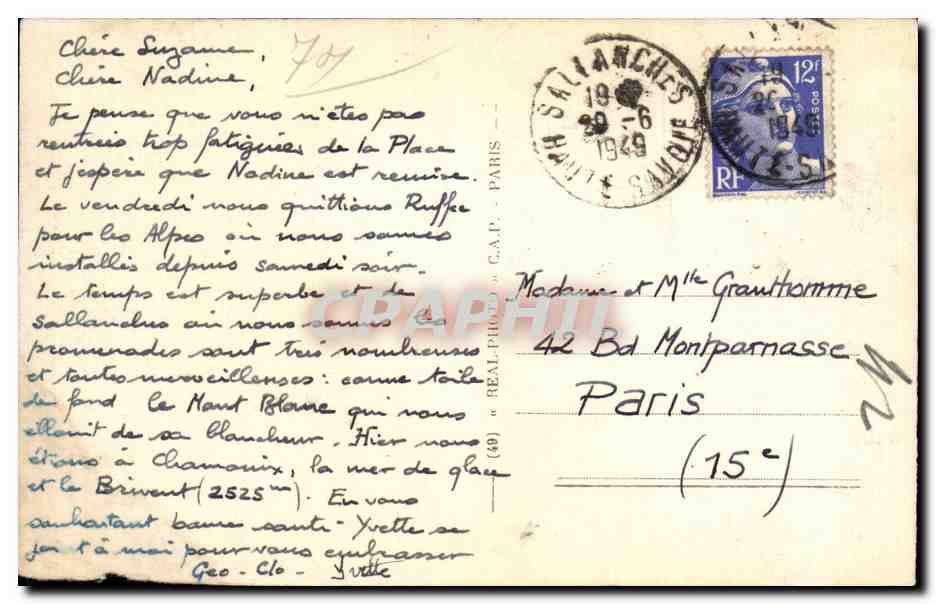 Chère Suzanne,
Chère Nadine,
Je pense que vous n'êtes pas
rentrées trop fatiguées de la Place
et j'espère que Nadine est remise.
Le vendredi nous quittions Ruffec
pour les Alpes où nous sommes
installés depuis samedi soir.
Le temps est superbe et de
Sallanches où nous sommes les
promenades sont très nombreuses
et toutes merveilleuses : comme toile
de fond le Mont Blanc qui nous
éblouit de sa blancheur. Hier nous
étions à Chamonix, la mer de glace
et le Brévent (2525 m). En vous
souhaitant bonne santé - Yvette se
joint à moi pour vous embrasser
Geo - Clo - Yvette
(49) « REAL-PHOTO » C.A.P. - PARIS
SALLANCHES
19
29 -6
1949
HAUTE SAVOIE
12F
POSTES
RF
Madame et Mlle Granthomme
42 Bd Montparnasse
Paris
(15e)
CPAPHIL